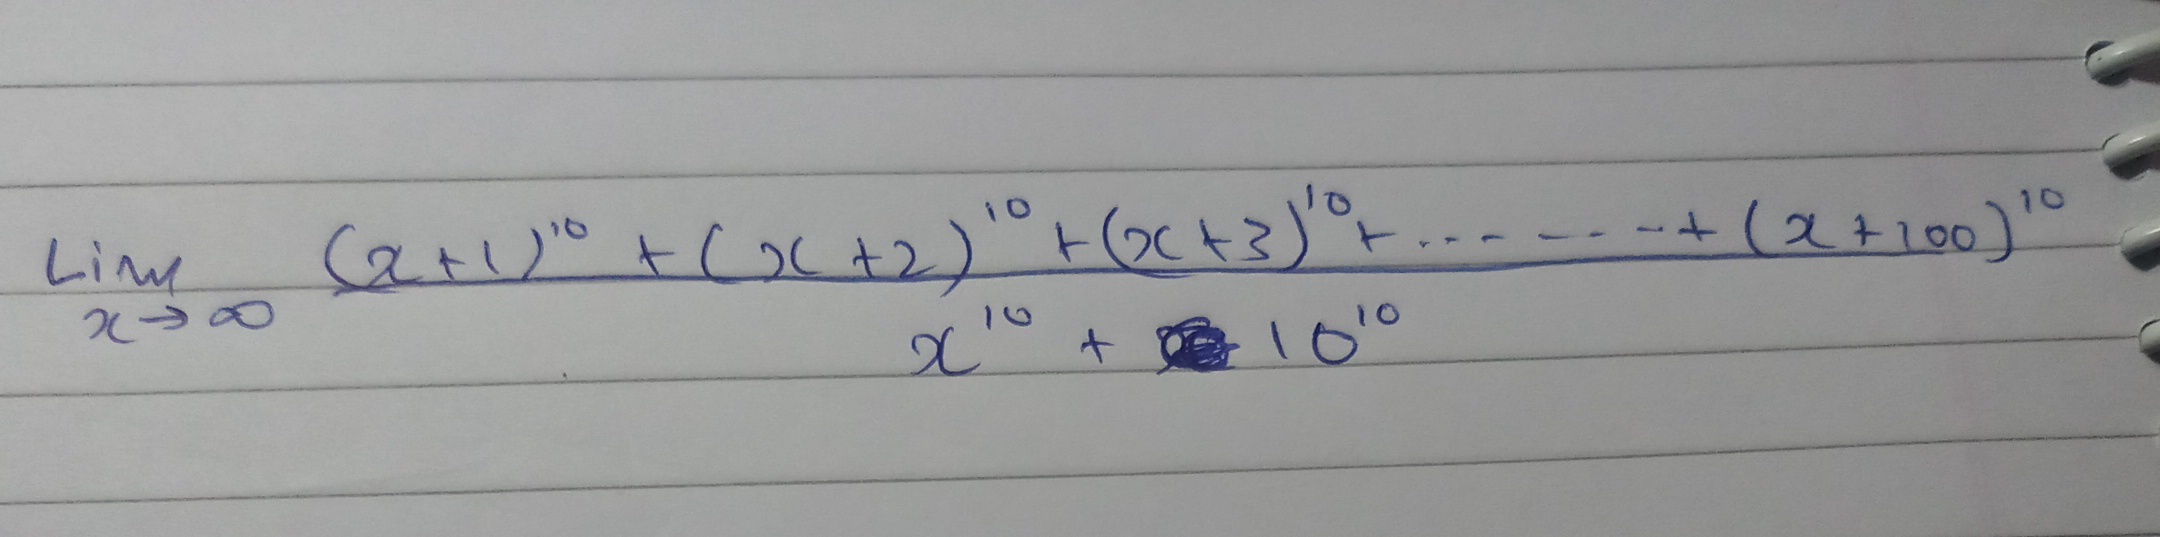 Lim (x+1)¹⁰ + (x+2)¹⁰ + (x+3)¹⁰ + ........ + (x+100)¹⁰
x→∞ x¹⁰ + 10¹⁰